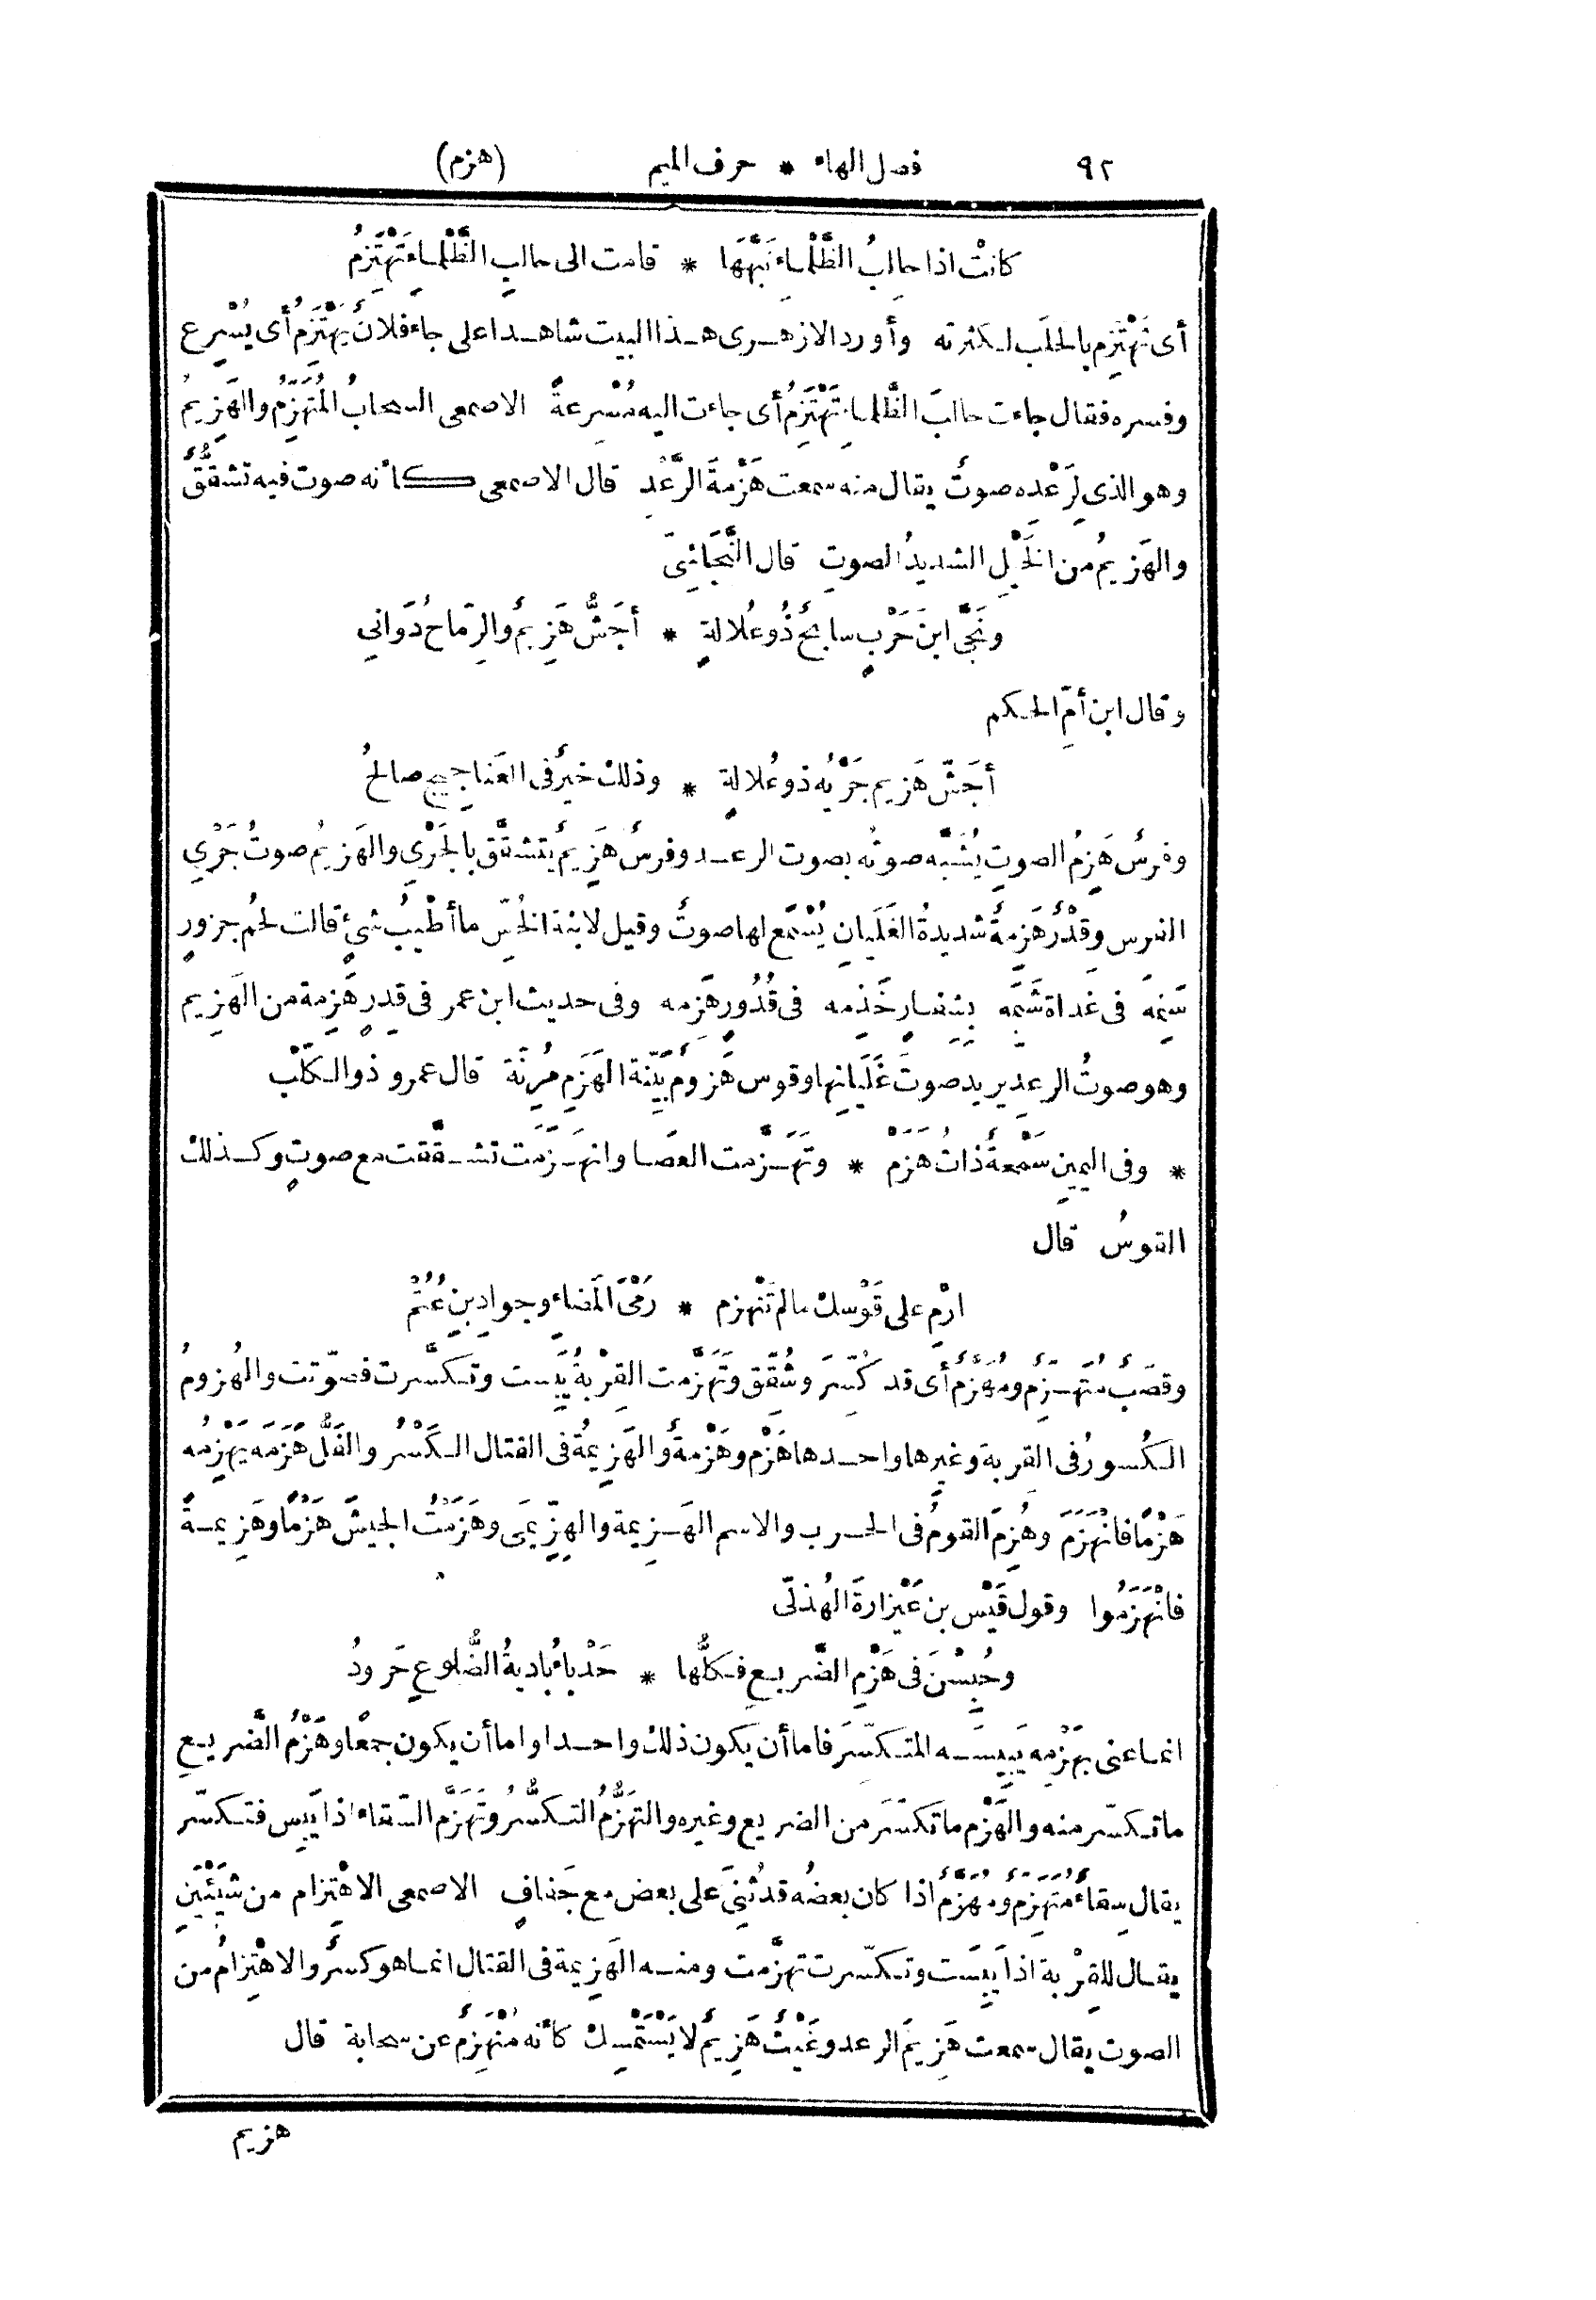 ٩٢ فصل الهاء * حرف الميم (هزم)
كانتْ اذا حالبُ الظَّلْماءِ نَبَّهَهَا * قامت الى حالبِ الظَّلْماءِ تَهْتَزِمُ
أى تَهْتَزِم بالحلَب لكثرته وأورد الازهرى هذا البيت شاهدا على جاء فلانٌ يَهْتَزِمُ أى يُسْرِع
وفسره فقال جاءت حالبَ الظَّلماءِ تَهْتَزِمُ أى جاءت اليه مُسْرِعةً الاصمعى السحابُ المُتَهَزِّمُ والهَزِيمُ
وهو الذى لِرَعْدِه صوتٌ يقال منه سمعت هَزْمةَ الرَّعْدِ قال الاصمعى كأنه صوت فيه تشقُّقٌ
والهَزِيمُ من الخَيْلِ الشديدُ الصوتِ قال النَّجَاشِىّ
ونَجَّى ابنَ حَرْبٍ سابحٌ ذُو عُلالةٍ * أَجَشُّ هَزِيمٌ والرِّمَاحُ دَوَانِي
وقال ابن أمِّ الحكم
أجَشّ هَزِيم جَرْيُه ذو عُلالةٍ * وذلك خيرٌ فى العَناجِيجِ صالحُ
وفرسٌ هَزِمُ الصوتِ يُشَبَّه صوتُه بصوت الرعد وفرسٌ هَزِيمٌ يتشقَّق بالجَرْيِ والهَزِيمُ صوتُ جَرْيِ
الفرس وقِدْرٌ هَزِمةٌ شديدةُ الغَلَيانِ يُسْمَع لها صوتٌ وقيل لابنة الخُسِّ ما أَطْيبُ شئٍ قالت لحمُ جزورٍ
سَنِمَه فى غَداة شَبِمَه بِشِفارٍ خَذِمه فى قُدُورٍ هَزِمه وفى حديث ابن عمر فى قِدرٍ هَزِمة من الهَزِيم
وهو صوتُ الرعدِ يريد صوتَ غَلَيانِها وقوس هَزُومٌ بَيِّنة الهَزَمِ مُرِنَّة قال عمرو ذو الكَلْب
* وفى اليمينِ سَمْحةٌ ذاتُ هَزَمْ * وتَهَزَّمت العصَا وانهَزَمَت تشقَّقت مع صوتٍ وكذلك
القوسُ قال
ارْمِ على قَوْسك ما لم تَنْهزم * رَمْىَ المَضاءِ وجوادِ بنِ عُتُمْ
وقصَبٌ مُتَهَزِّمٌ ومُهَزَّمٌ أى قد كُسِّرَ وشُقِّق وتَهَزَّمت القِرْبةُ يَبِست وتكسَّرت فصوّتت والهُزومُ
الكُسورُ فى القربة وغيرِها واحدها هَزْم وهَزْمةٌ والهَزِيمةُ فى القتال الكَسْرُ والفَلُّ هَزَمَه يَهْزِمُه
هَزْمًا فانْهَزَمَ وهُزِمَ القومُ فى الحرب والاسم الهَزِيمة والهِزِّيمَى وهَزَمْتُ الجيشَ هَزْمًا وهَزِيمةً
فانْهَزَمُوا وقول قَيْس بن عَيْزارةَ الهُذلىّ
وحُبِسْنَ فى هَزْمِ الضَّرِيعِ فكلُّها * حَدْباءُ باديةُ الضُّلوعِ حَرودُ
انما عنى بهَزْمِه يَبِيسَه المتكسِّرَ فاما أن يكون ذلك واحدا واما أن يكون جمعًا وهَزْمُ الضَّرِيعِ
ما تكسّر منه والهَزْم ما تكسّرَ من الضريع وغيره والتهَزُّمُ التكسُّرُ وتَهَزَّم السّقاء اذا يَبِس فتكسّر
يقال سِقاءٌ مُتَهَزِّم ومُهَزَّمٌ اذا كان بعضُه قد ثُنِىَ على بعض مع جَفافٍ الاصمعى الاهْتِزام من شَيْئَيْنِ
يقال للقِرْبة اذا يَبِسَت وتكسّرت تهزَّمت ومنه الهَزِيمة فى القتال انما هو كسرٌ والاهْتِزامُ من
الصوت يقال سمعت هَزِيمَ الرعد وغَيْثٌ هَزِيمٌ لا يَسْتَمْسِك كأنه مُنْهَزِمٌ عن سحابة قال
هزيم